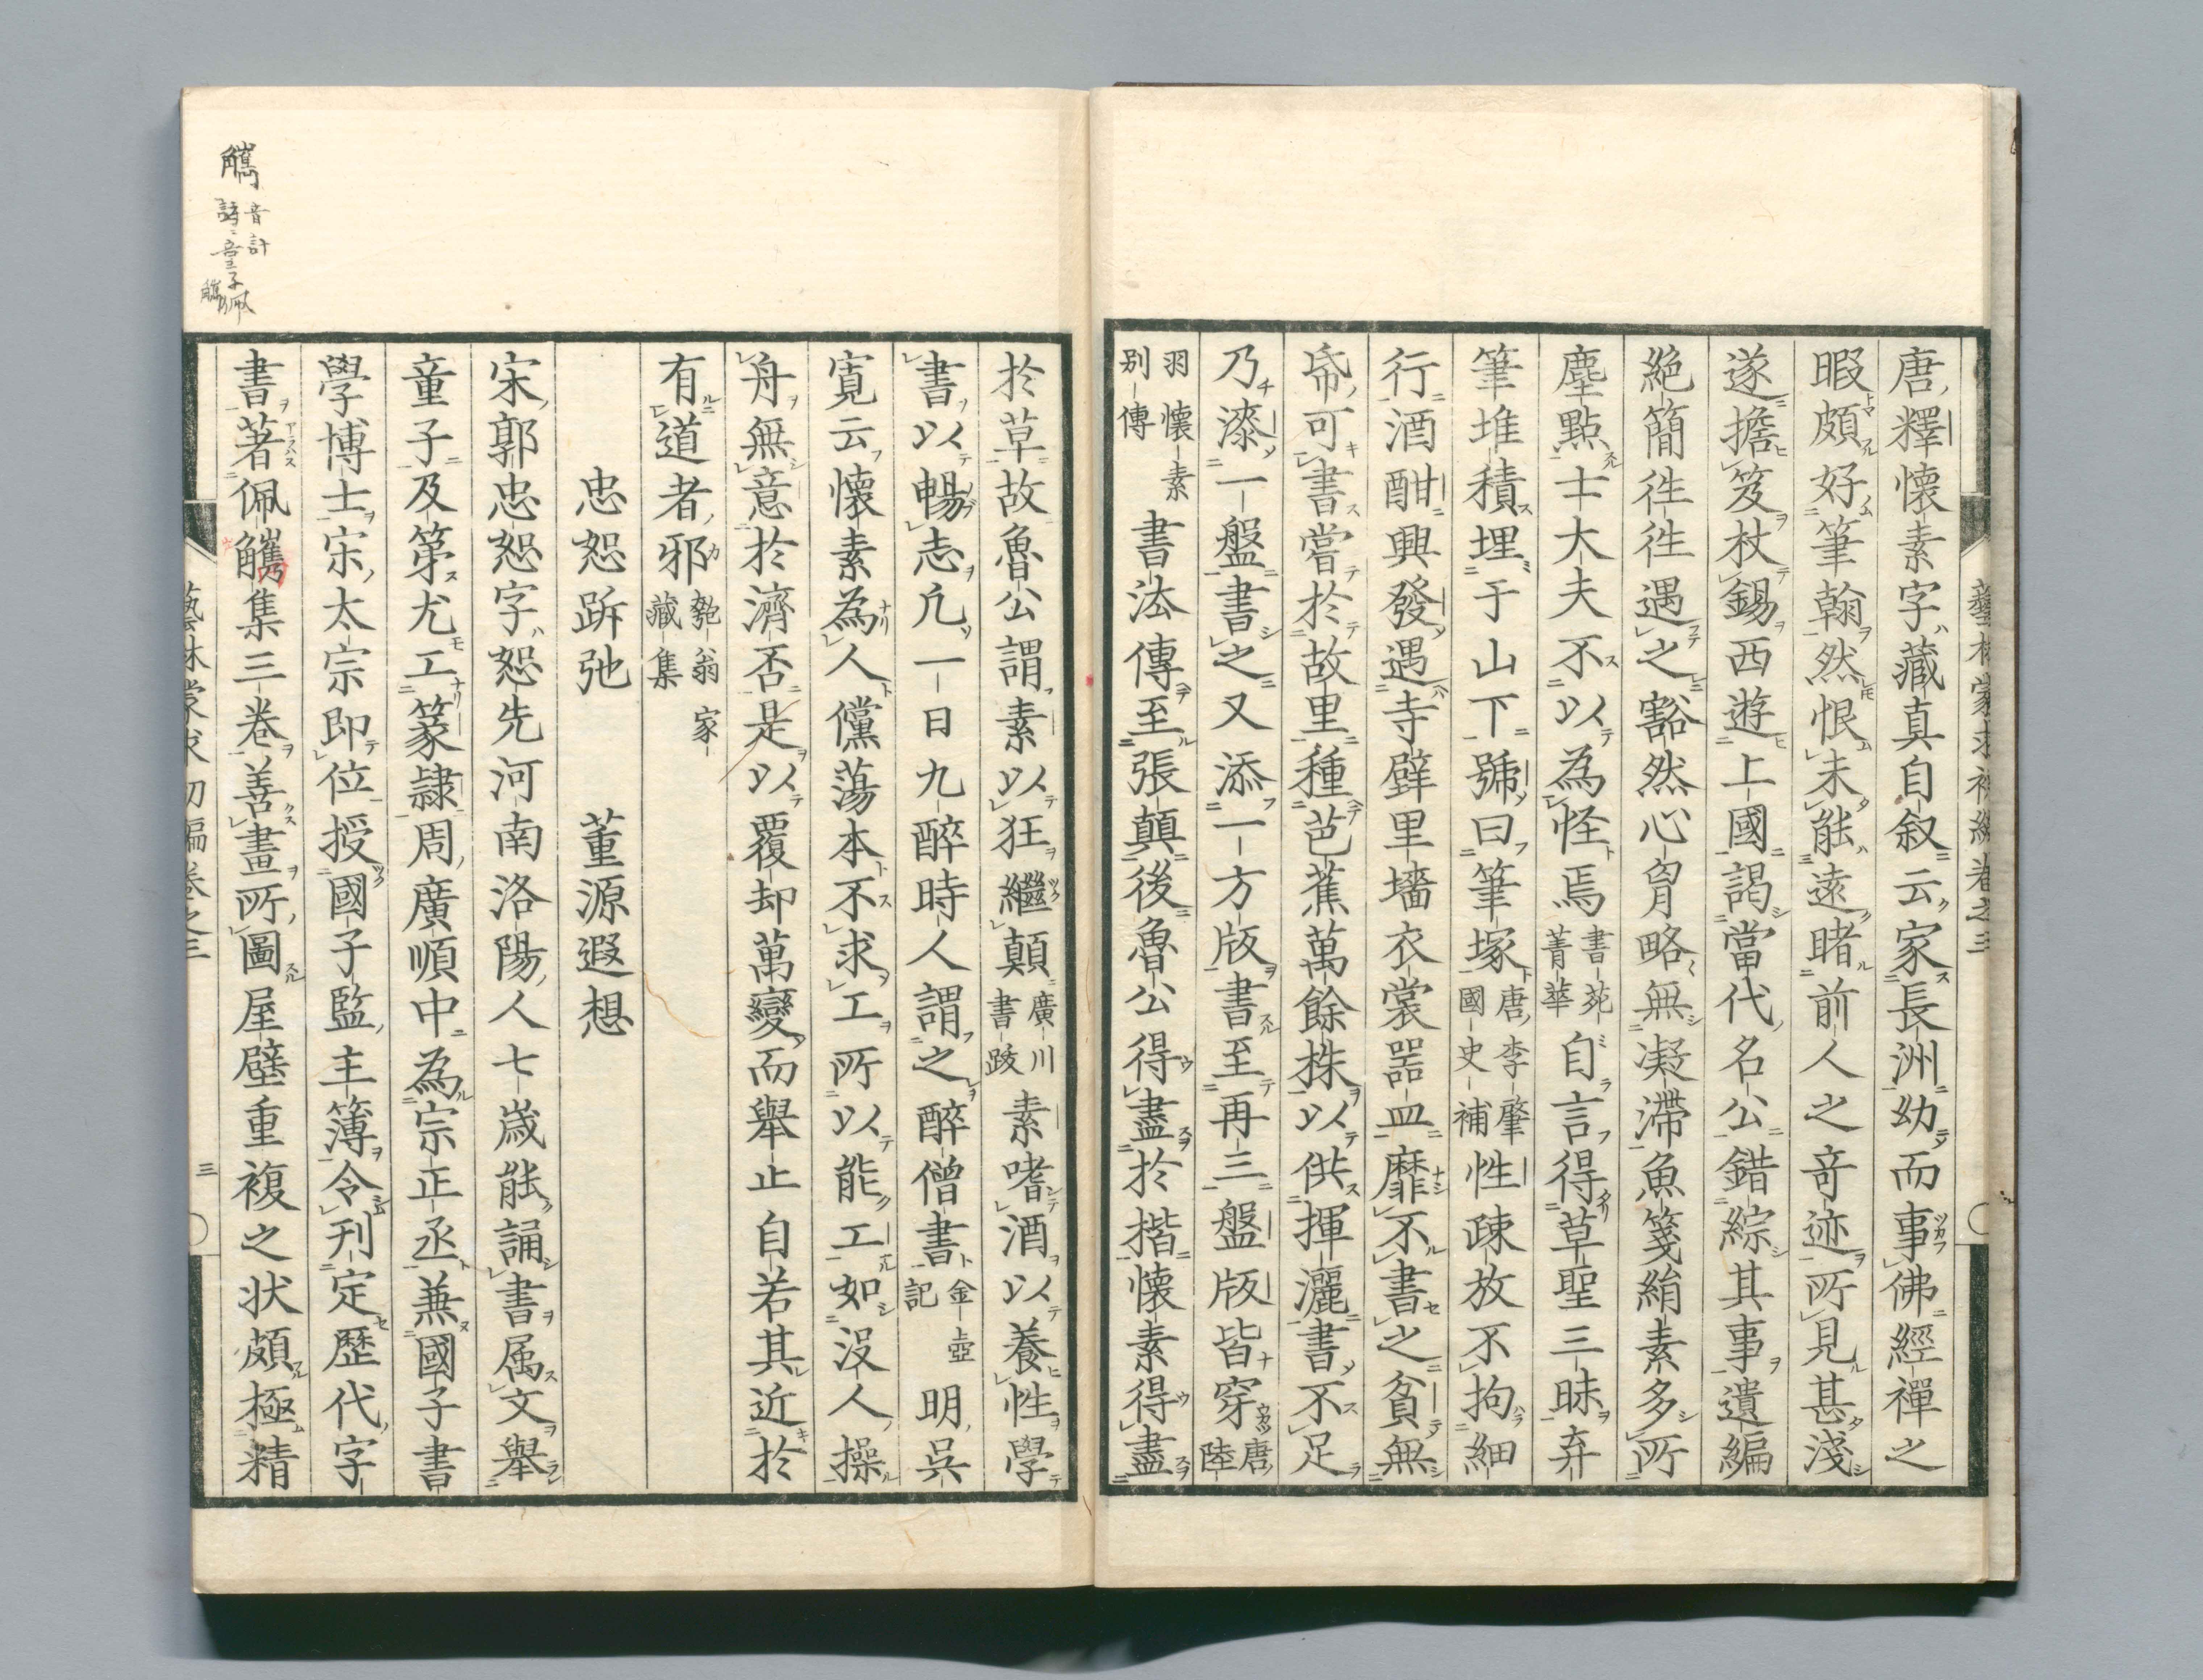 唐釋懷素字藏真自叙云家長洲幼而事佛經禪之
暇頗好筆翰然恨未能遠睹前人之奇迹所見甚淺
遂擔笈杖錫西遊上國謁當代名公錯綜其事遺編
絶簡往往遇之豁然心胷略無凝滯魚箋絹素多所
塵點士大夫不以為怪焉書苑菁華自言得草聖三昧弃
筆堆積埋于山下號曰筆塚唐李肇國史補性疎放不拘細
行酒酣興發遇寺壁里墻衣裳器皿靡不書之貧無
帋可書嘗於故里種芭蕉萬餘株以供揮灑書不足
乃漆一盤書之又添一方版書至再三盤版皆穿唐陸
羽懷素別傳書法傳至張顛後魯公得盡於楷懷素得盡
於草故魯公謂素以狂繼顛廣川書跋素嗜酒以養性學
書以暢志凢一日九醉時人謂之醉僧書金壺記明吳
寛云懷素為人儻蕩本不求工所以能工如沒人操
舟無意於濟否是以覆却萬變而舉止自若其近於
有道者邪匏翁家藏集
忠恕跅弛　董源遐想
宋郭忠恕字恕先河南洛陽人七歳能誦書属文舉
童子及第尤工篆隷周廣順中為宗正丞兼國子書
學博士宋太宗即位授國子監主簿令刊定歴代字
書著佩觿集三巻善畫所圖屋壁重複之状頗極精
藝林蒙求初編巻之三
三
觿
音計
詩童子佩觿